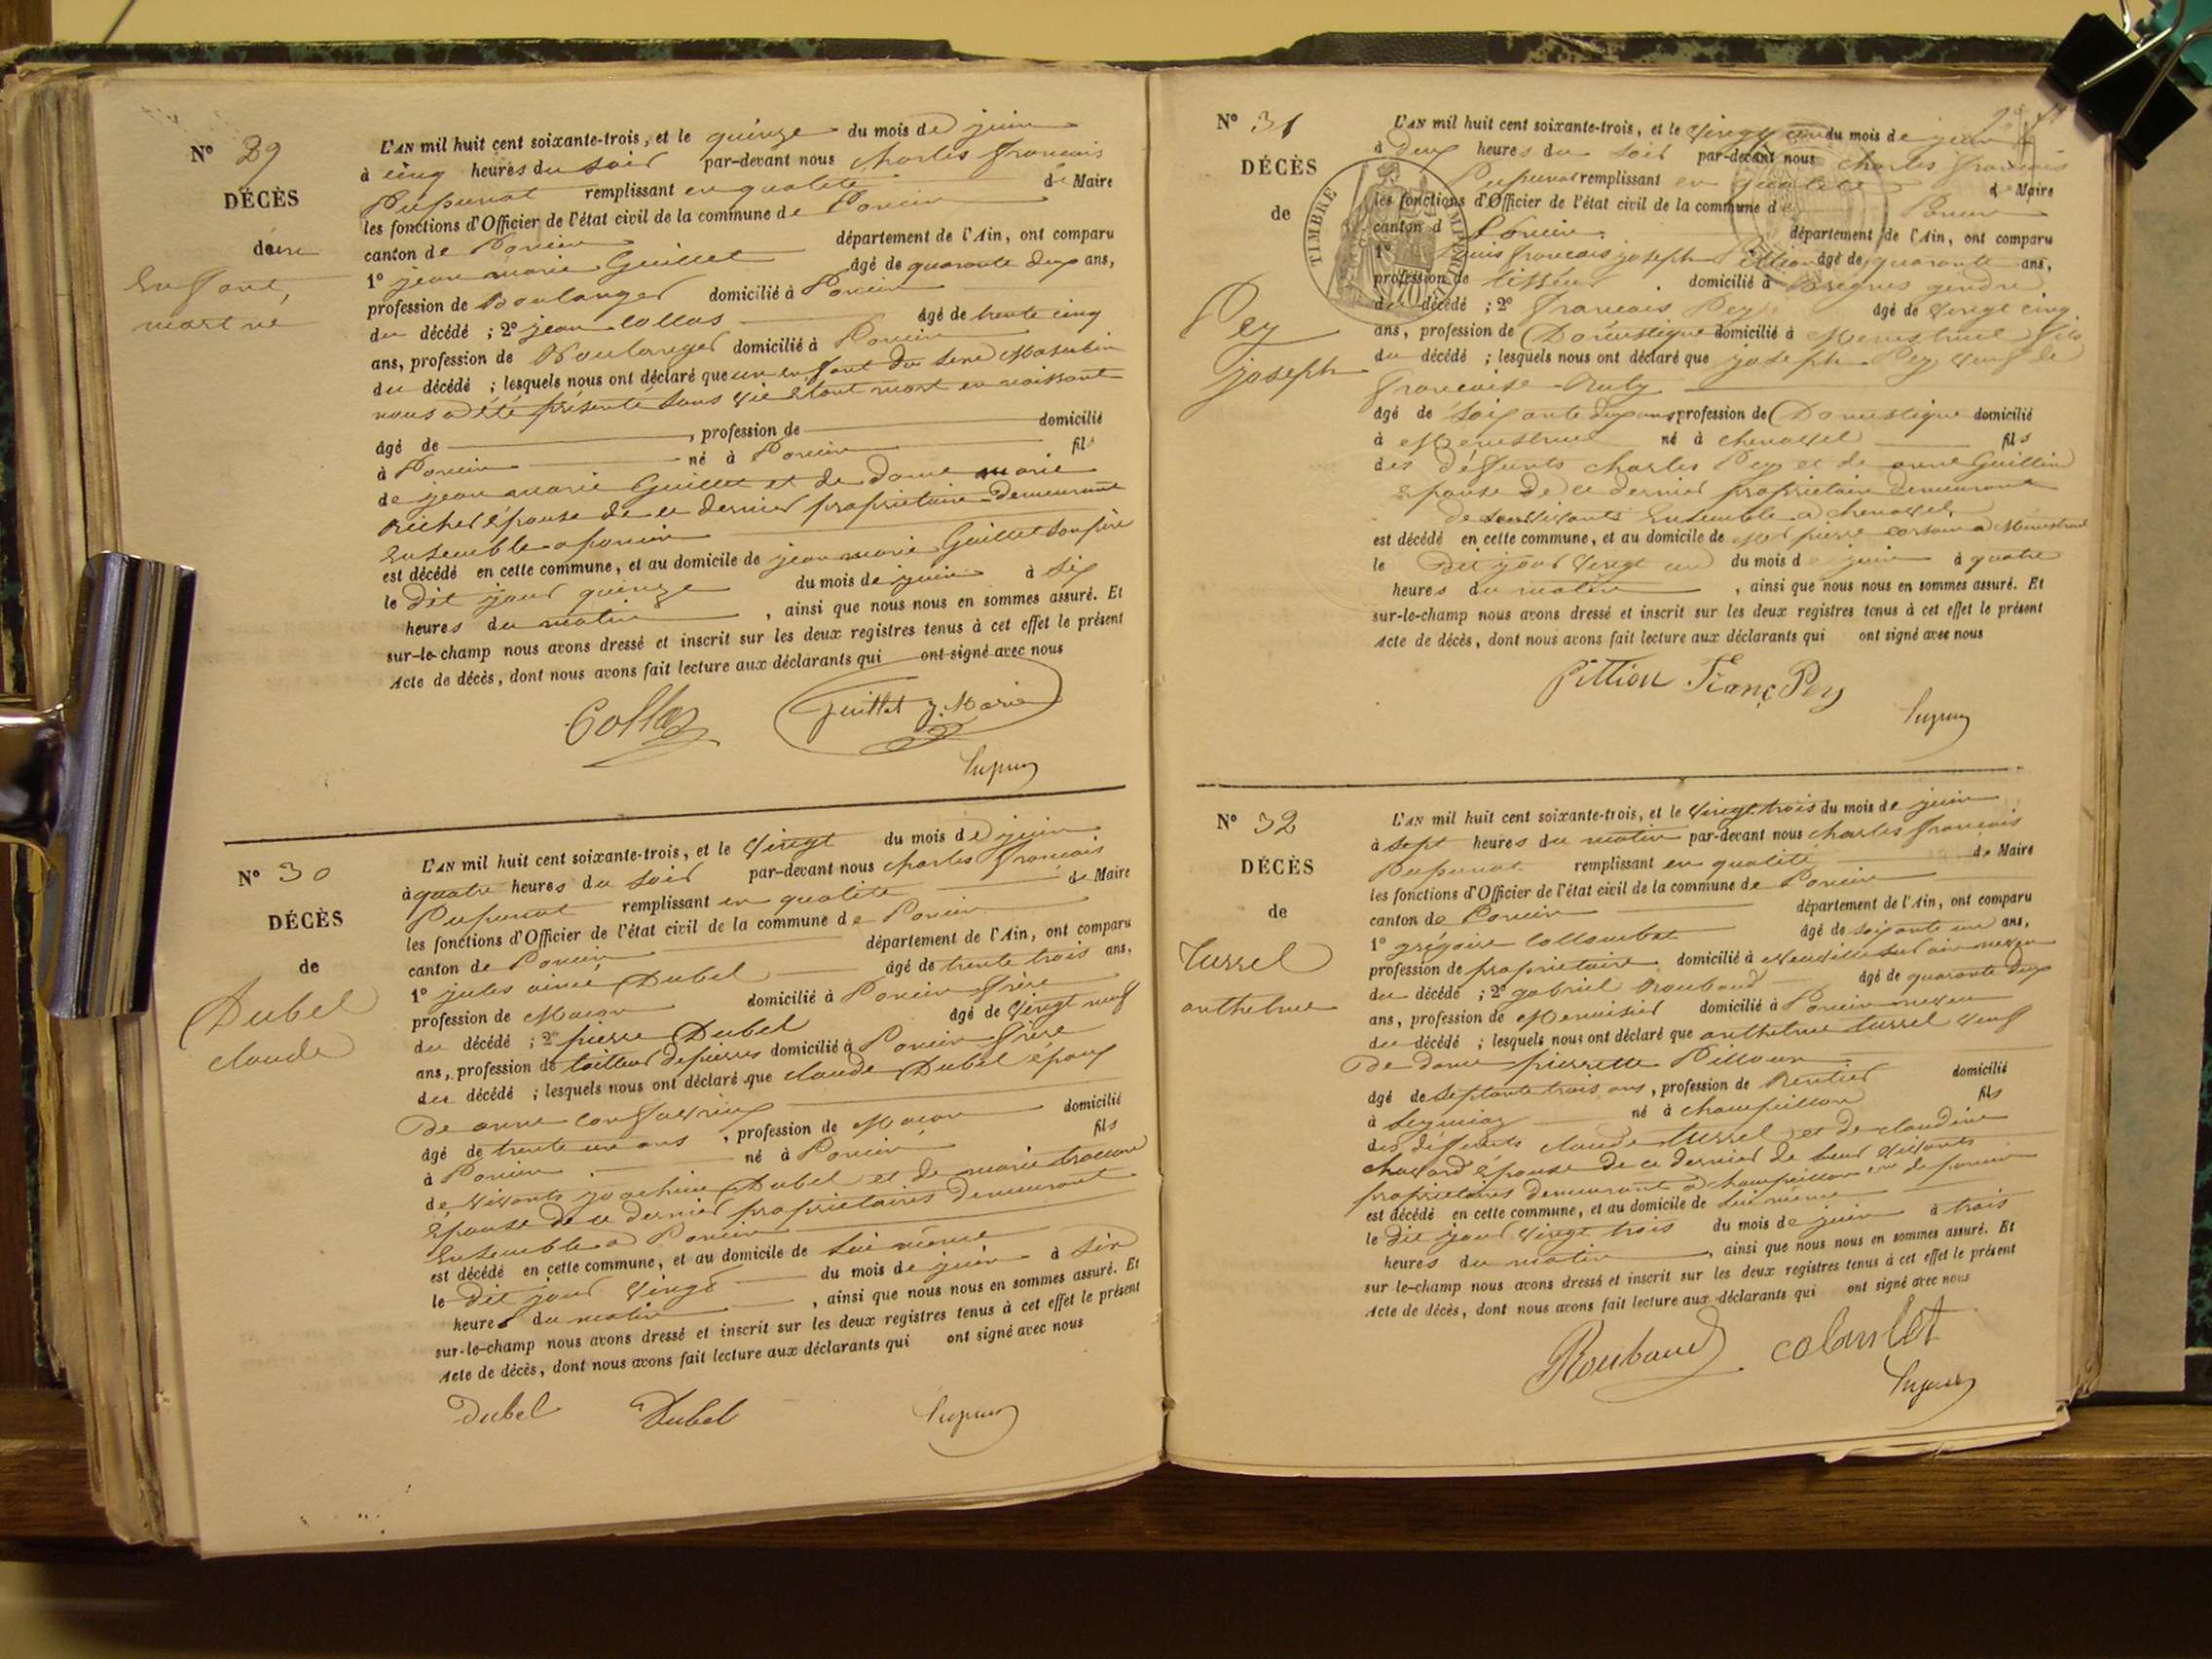 N° 29
DÉCÈS
d'un
Enfant,
mort né
L'AN mil huit cent soixante-trois, et le quinze du mois de juin
à cinq heures du soir par-devant nous charles francois
Pupunat remplissant en qualité de Maire
les fonctions d'Officier de l'état civil de la commune de Poncin
canton de Poncin département de l'Ain, ont comparu
1° jean marie Guillet âgé de quarante deux ans,
profession de Boulanger domicilié à Poncin
du décédé ; 2° jean Collas âgé de trente cinq
ans, profession de Boulanger domicilié à Poncin
du décédé ; lesquels nous ont déclaré que un enfant du sexe Masculin
nous a été présenté sans vie étant mort en naissant
âgé de , profession de domicilié
à Poncin né à Poncin fils
de jean marie Guillet et de dame marie
Richer épouse de ce dernier propriétaire demeurant
Ensemble a poncin
est décédé en cette commune, et au domicile de jean marie Guillet son père
le dit jour quinze du mois de juin à six
heures du matin , ainsi que nous nous en sommes assuré. Et
sur-le-champ nous avons dressé et inscrit sur les deux registres tenus à cet effet le présent
Acte de décès, dont nous avons fait lecture aux déclarants qui ont signé avec nous
Collas Guillet J. Marie
N° 30
DÉCÈS
de
Dubel
claude
L'AN mil huit cent soixante-trois, et le Vingt du mois de juin
à quatre heures du soir par-devant nous charles francois
Pupunat remplissant en qualité de Maire
les fonctions d'Officier de l'état civil de la commune de Poncin
canton de Poncin département de l'Ain, ont comparu
1° jules aimé Dubel âgé de trente trois ans,
profession de Macon domicilié à Poncin frère
du décédé ; 2° pierre Dubel âgé de Vingt neuf
ans, profession de tailleur de pierres domicilié à Poncin frère
du décédé ; lesquels nous ont déclaré que claude Dubel époux
de anne
âgé de trente un ans , profession de Macon domicilié
à Poncin né à Poncin fils
de Vivants joachim Dubel et de marie
épouse de ce dernier propriétaires demeurant
Ensemble a Poncin
est décédé en cette commune, et au domicile de lui même
le dit jour Vingt du mois de juin à six
heures du matin , ainsi que nous nous en sommes assuré. Et
sur-le-champ nous avons dressé et inscrit sur les deux registres tenus à cet effet le présent
Acte de décès, dont nous avons fait lecture aux déclarants qui ont signé avec nous
Dubel Dubel
N° 31
DÉCÈS
de
Pey
joseph
TIMBRE
L'AN mil huit cent soixante-trois, et le Vingt un du mois de juin
à deux heures du soir par-devant nous charles francois
Pupunat remplissant en qualité de Maire
les fonctions d'Officier de l'état civil de la commune de Poncin
canton d Poncin département de l'Ain, ont comparu
1° Louis francois joseph Pittion âgé de quarante ans,
profession de tisseur domicilié à gendre
du décédé ; 2° francois Pey âgé de Vingt cinq
ans, profession de Domestique domicilié à Menestruel fils
du décédé ; lesquels nous ont déclaré que joseph Pey Veuf de
francoise
âgé de soixante deux ans profession de Domestique domicilié
à Menestruel né à chenavel fils
des défunts charles Pey et de anne Guillin
Epouse de ce dernier propriétaire demeurant
de leurs Vivants Ensemble a chenavel
est décédé en cette commune, et au domicile de pierre a Menestruel
le dit jour Vingt un du mois de juin à quatre
heures du matin , ainsi que nous nous en sommes assuré. Et
sur-le-champ nous avons dressé et inscrit sur les deux registres tenus à cet effet le présent
Acte de décès, dont nous avons fait lecture aux déclarants qui ont signé avec nous
Pittion Franç Pey
N° 32
DÉCÈS
de
Turrel
anthelme
L'AN mil huit cent soixante-trois, et le Vingt trois du mois de juin
à sept heures du matin par-devant nous charles francois
Pupunat remplissant en qualité de Maire
les fonctions d'Officier de l'état civil de la commune de Poncin
canton de Poncin département de l'Ain, ont comparu
1° grégoire Collombet âgé de soixante un ans,
profession de propriétaire domicilié à Neuville sur ain neveu
du décédé ; 2° gabriel Roubaud âgé de quarante deux
ans, profession de Menuisier domicilié à Poncin neveu
du décédé ; lesquels nous ont déclaré que anthelme turrel Veuf
de dame pierrette
âgé de septante trois ans , profession de Rentier domicilié
à Leymiaz né à champeillon fils
des défunts claude turrel et de claudine
chavard épouse de ce dernier de leur Vivants
propriétaires demeurants a champeillon de poncin
est décédé en cette commune, et au domicile de lui même
le dit jour Vingt trois du mois de juin à trois
heures du matin , ainsi que nous nous en sommes assuré. Et
sur le-champ nous avons dressé et inscrit sur les deux registres tenus à cet effet le présent
Acte de décès, dont nous avons fait lecture aux déclarants qui ont signé avec nous
Roubaud colombet